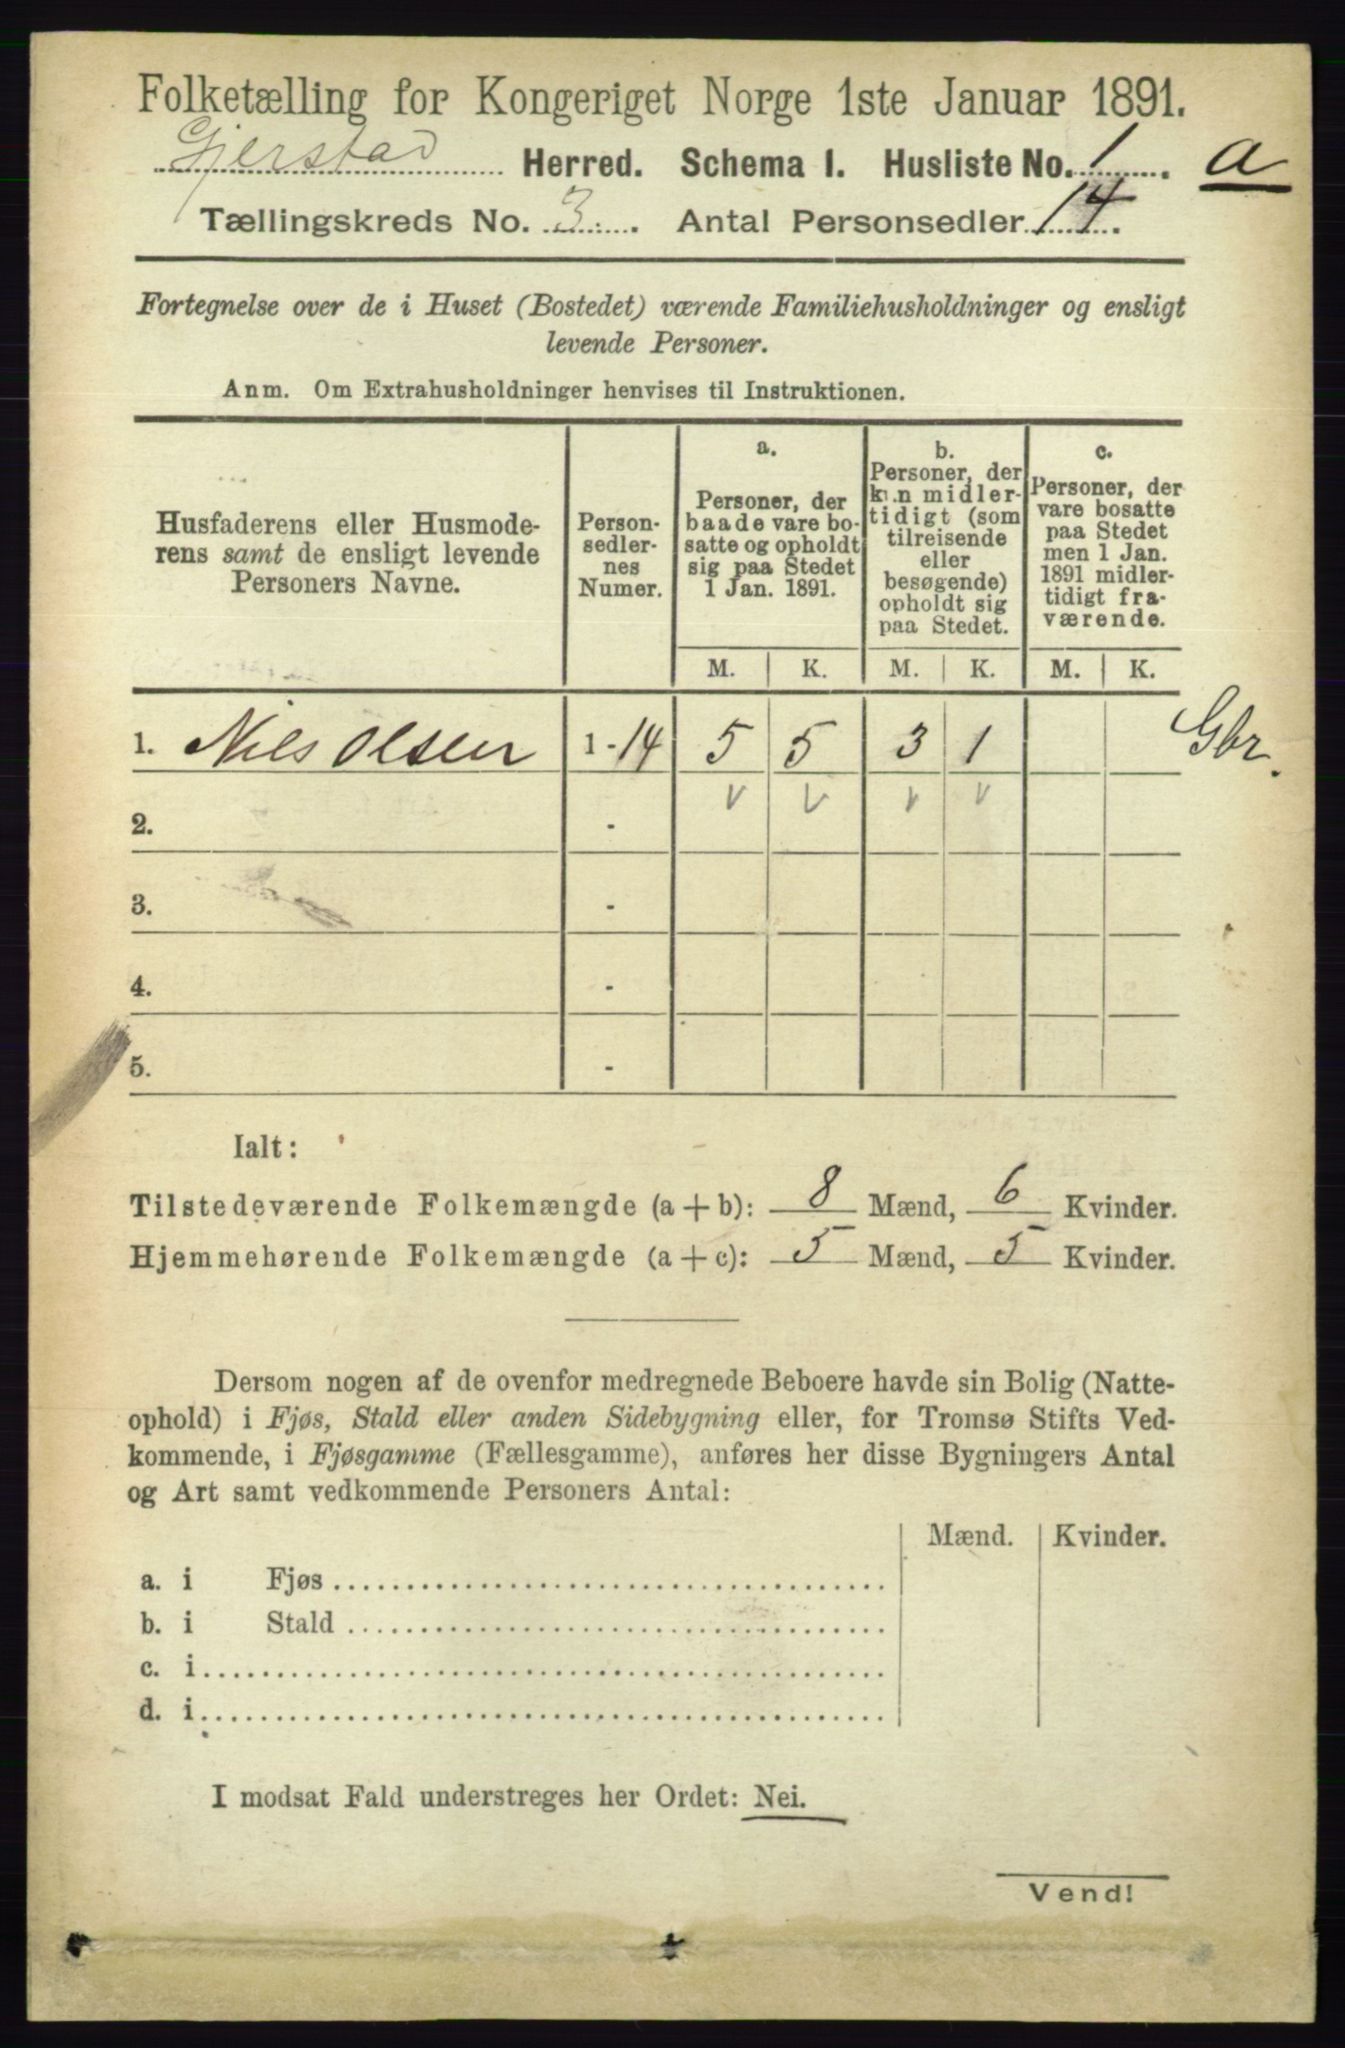 Folketælling for Kongeriget Norge 1ste Januar 1891.
Gjerstad Herred. Schema I. Husliste No. 1. a
Tællingskreds No. 3. Antal Personsedler 14.
Fortegnelse over de i Huset (Bostedet) værende Familiehusholdninger og ensligt
levende Personer.
Anm. Om Extrahusholdninger henvises til Instruktionen.
Husfaderens eller Husmode-
rens samt de ensligt levende
Personers Navne.
Person-
sedler-
nes
Numer.
a.
Personer, der
baade vare bo-
satte og opholdt
sig paa Stedet
1 Jan. 1891.
b.
Personer, der
kun midler-
tidigt (som
tilreisende
eller
besøgende)
opholdt sig
paa Stedet.
c.
Personer, der
vare bosatte
paa Stedet
men 1 Jan.
1891 midler-
tidigt fra-
værende.
M. K. M. K. M. K.
1. Nils Olsen 1 - 14 5 5 3 1 Gbr.
2. -
3. -
4. -
5. -
Ialt:
Tilstedeværende Folkemængde (a + b): 8 Mænd, 6 Kvinder.
Hjemmehørende Folkemængde (a + c): 5 Mænd, 5 Kvinder.
Dersom nogen af de ovenfor medregnede Beboere havde sin Bolig (Natte-
ophold) i Fjøs, Stald eller anden Sidebygning eller, for Tromsø Stifts Ved-
kommende, i Fjøsgamme (Fællesgamme), anføres her disse Bygningers Antal
og Art samt vedkommende Personers Antal:
Mænd. Kvinder.
a. i Fjøs
b. i Stald
c. i
d. i
I modsat Fald understreges her Ordet: Nei.
Vend!